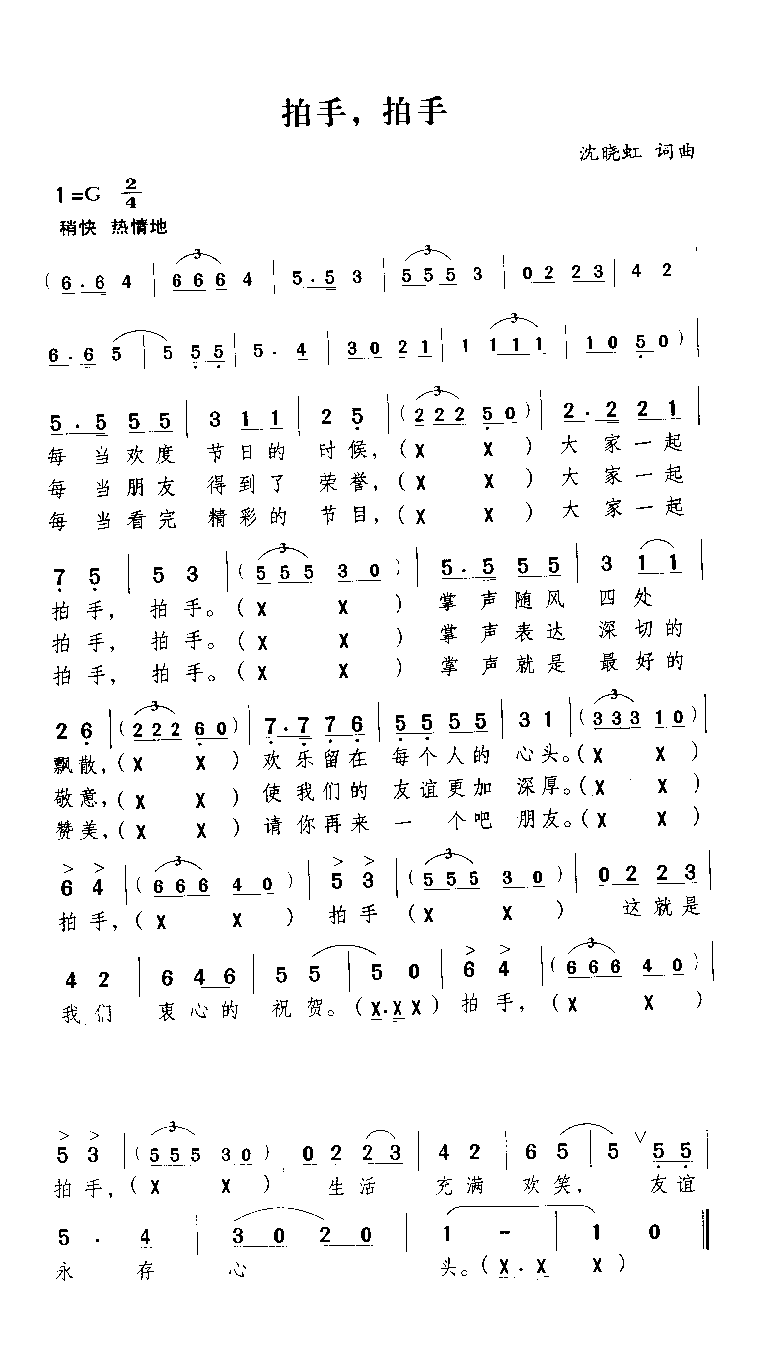 拍手，拍手
沈晓虹 词曲
1=G 2/4
稍快 热情地
( 6·6 4 | 3 666 4 | 5·5 3 | 3 555 3 | 0 2 2 3 | 4 2
6·6 5 | 5 5 5 | 5· 4 | 3 0 2 1 | 1 3 111 | 1 0 5 0 ) |
5·5 5 5 | 3 1 1 | 2 5 | ( 3 222 5 0 ) | 2·2 2 1 |
每当欢度 节日的 时候，( X X ) 大家一起
每当朋友 得到了 荣誉，( X X ) 大家一起
每当看完 精彩的 节目，( X X ) 大家一起
7 5 | 5 3 | ( 3 555 3 0 ) | 5·5 5 5 | 3 1 1 |
拍手， 拍手。( X X ) 掌声随风 四处
拍手， 拍手。( X X ) 掌声表达 深切的
拍手， 拍手。( X X ) 掌声就是 最好的
2 6 | ( 3 222 6 0 ) | 7·7 7 6 | 5 5 5 5 | 3 1 | ( 3 333 1 0 ) |
飘散，( X X ) 欢乐留在 每个人的 心头。( X X )
敬意，( X X ) 使我们的 友谊更加 深厚。( X X )
赞美，( X X ) 请你再来 一个吧 朋友。( X X )
> > 6 4 | ( 3 666 4 0 ) | > > 5 3 | ( 3 555 3 0 ) | 0 2 2 3 |
拍手，( X X ) 拍手 ( X X ) 这就是
4 2 | 6 4 6 | 5 5 | 5 0 | > > 6 4 | ( 3 666 4 0 ) |
我们 衷心的 祝贺。( X·X X ) 拍手，( X X )
> > 5 3 | ( 3 555 3 0 ) | 0 2 2 3 | 4 2 | 6 5 | 5 ∨ 5 5 |
拍手，( X X ) 生活 充满 欢笑， 友谊
5 · 4 | 3 0 2 0 | 1 - | 1 0 ‖
永 存 心 头。( X·X X )